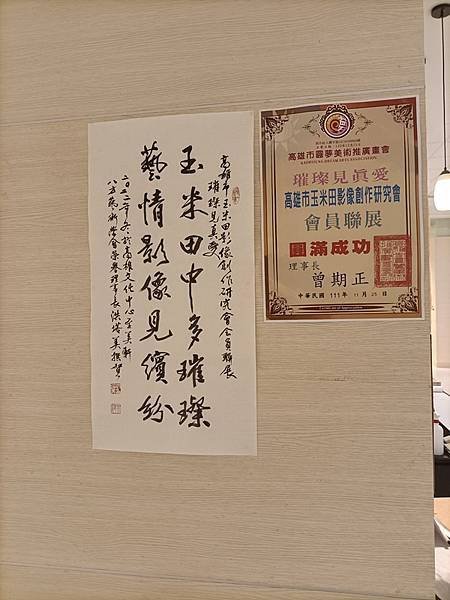 高雄市玉米田影像創作研究會會員聯展
璀璨見真愛
玉米田中多璀璨
藝情影像見繽紛
二〇二二年冬於高雄文化中心至美軒
高雄市夢美術推廣畫會
璀璨見真愛
高雄市玉米田影像創作研究會
會員聯展
圓滿成功
理事長
曾期正
中華民國 111年 11月 25日